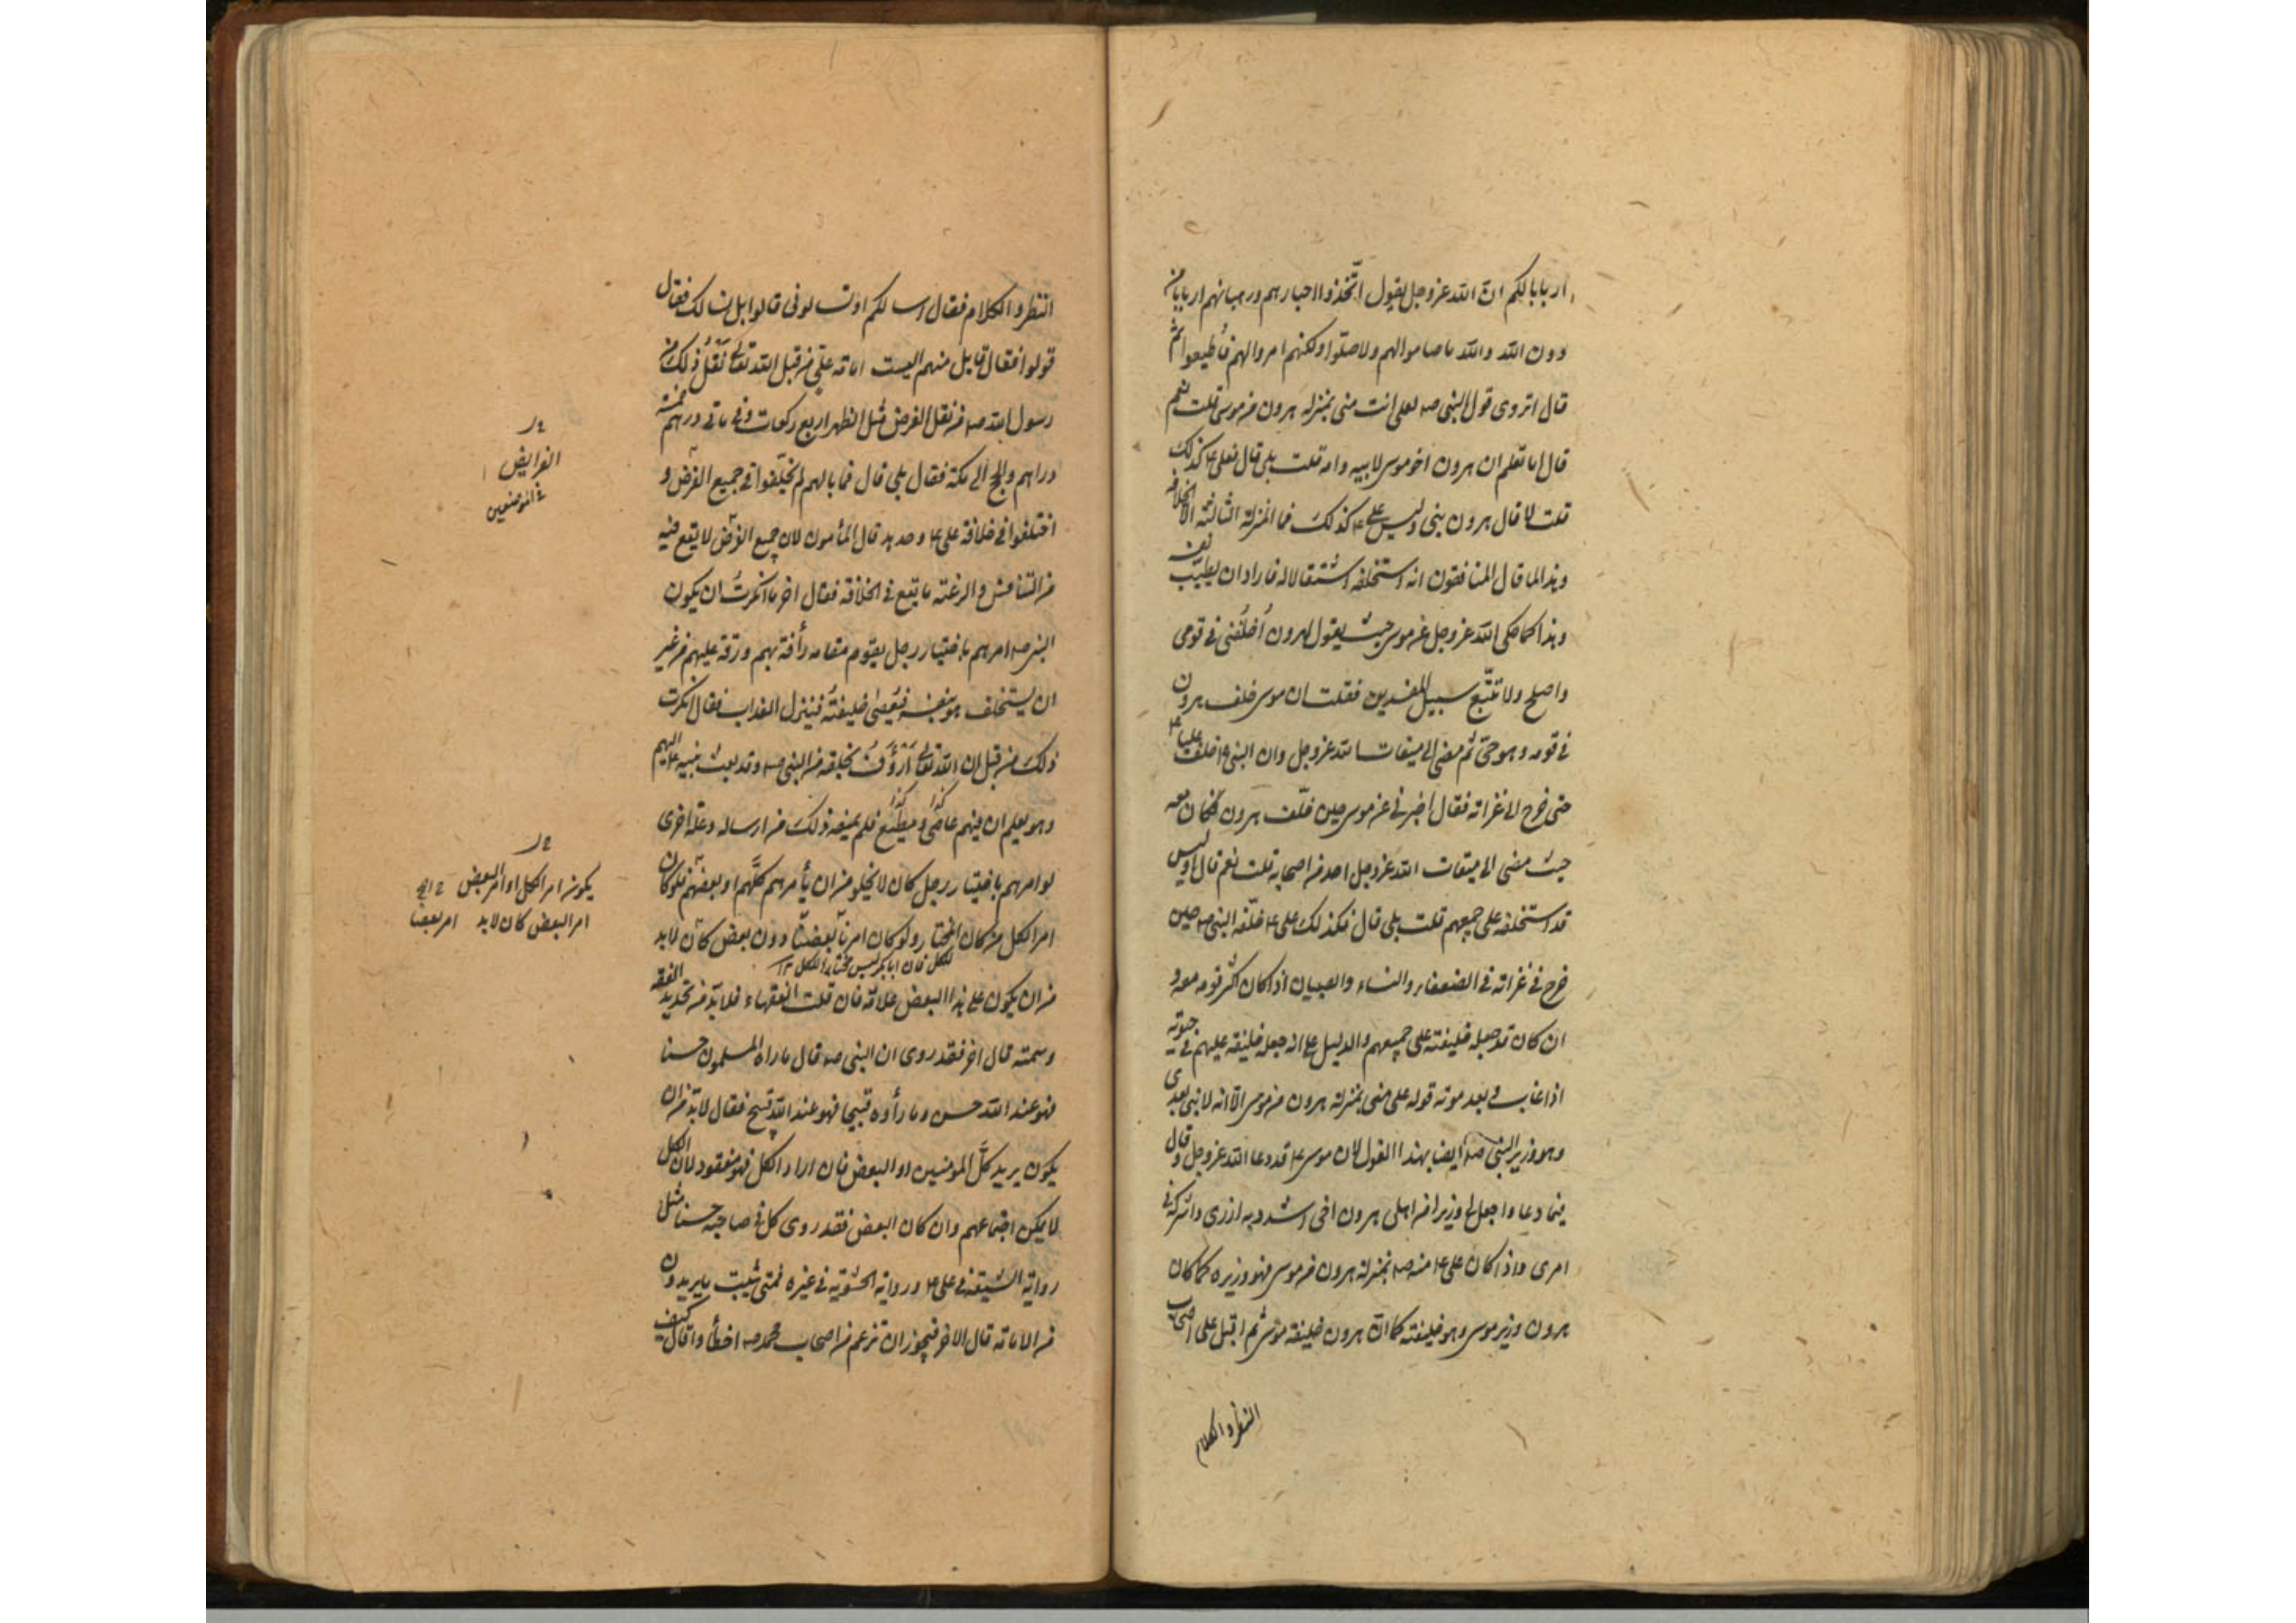 اربابا لكم ان الله عزوجل يقول اتّخذوا احبارهم ورهبانهم اربابا من
دون الله والله ما صاموا لهم ولا صلّوا ولكنهم امروا لهم فأطيعوا ثم
قال اتروى قول النبى صه لعلى انت منى بمنزلة هرون من موسى قلت نعم
قال اما تعلم ان هرون اخو موسى لابيه وامه قلت بلى قال فعلى ع كذلك
قلت لا قال هرون نبى وليس على ع كذلك فما المنزلة الثالثة الا الخلافة
وهذا لما قال المنافقون انه استخلفه استثقالا له فاراد ان يطيّب نفسه
وهذا كما حكى الله عزوجل عن موسى حيث يقول لهرون اُخلُفنى فى قومى
واصلح ولا تتّبع سبيل المفسدين فقلت ان موسى خلف هرون
فى قومه وهو حىّ ثم مضى الى ميقات الله عزوجل وان النبى ص خلف عليا ع
حتى خرج الى غزاته فقال اخبرنى عن موسى حين خلّف هرون أكان معه
حيث مضى الى ميقات الله عزوجل احد من اصحابه قلت نعم قال اوليس
قد استخلفه على جميعهم قلت بلى قال فكذلك على ع خلّفه النبى صه حين
خرج فى غزاته فى الضعفاء والنساء والصبيان اذا كان اكثر قومه معه و
ان كان قد جعله خليفته على جميعهم والدليل على انه جعله خليفة عليهم فى حيوته
اذا غاب وبعد موته قوله على منى بمنزلة هرون من موسى الا انه لا نبى بعدى
وهو وزير النبى صه ايضا بهذا القول لان موسى ع قد دعا الله عزوجل وقال
فيما دعا واجعل لى وزيرا من اهلى هرون اخى اشدد به ازرى واشركه فى
امرى واذا كان على ع منه صه بمنزلة هرون من موسى فهو وزيره كما كان
هرون وزير موسى وهو خليفته كما انّ هرون خليفة موسى ثم اقبل على اصحاب
النظر والكلام
النظر والكلام فقال اسالكم او تسالونى قالوا بل نسالك فقال
قولوا فقال قايل منهم اليست امامة على من قبل الله تعالى نقل ذلك من
رسول الله صه من نقل الفرض مثل الظهر اربع ركعات وفى مأتى درهم خمسة
دراهم والحج الى مكة فقال بلى قال فما بالهم لم يختلفوا فى جميع الفرض و
اختلفوا فى خلافة على ع وحدها قال المأمون لان جميع الفرض لا يقع فيه
من التنافس والرغبة ما يقع فى الخلافة فقال اخر ما انكرتُ ان يكون
النبى صه امرهم باختيار رجل يقوم مقامه رأفة بهم ورقة عليهم من غير
ان يستخلف هو بنفسه فيُعصى خليفتُه فينزل العذاب فقال انكرت
ذلك من قبل ان الله تعالى اَرْؤَفُ بخلقه من النبى صه وقد بعث نبيه ع اليهم
وهو يعلم ان فيهم عاصٍ ومطيع فلم يمنعه ذلك من ارساله وعلة اخرى
لو امرهم باختيار رجل كان لا يخلو من ان يأمرهم كلّهم او بعضهم فلو كان
امر الكل من كان المختار ولو كان امر بعضنا دون بعض كان لابد
للكل فان ابا بكر ليس مختارا للكل ١٢
من ان يكون على هذا البعض علامة فان قلت الفقهاء فلابد من تحديد الفقه
وسمته قال اخر فقد روى ان النبى صه قال ما راه المسلمون حسنا
فهو عند الله حسن وما رأوه قبيحا فهو عند الله قبيح فقال لابد من ان
يكون يريد كلّ المومنين او البعض فان اراد الكل فهو مفقود لان الكل
لا يمكن اجتماعهم وان كان البعض فقد روى كل فى صاحبه حسنا مثل
رواية الشيعة فى على ع ورواية الحشوية فى غيره فمتى يثبت ما يريدون
من الامامة قال الاخر فيجوز ان تزعم من اصحاب محمد صه اخطأوا قال كيف
الفرايض
فى الموضعين
يكون امر الكل او امر البعض
امر البعض كان لابد امر بعضا